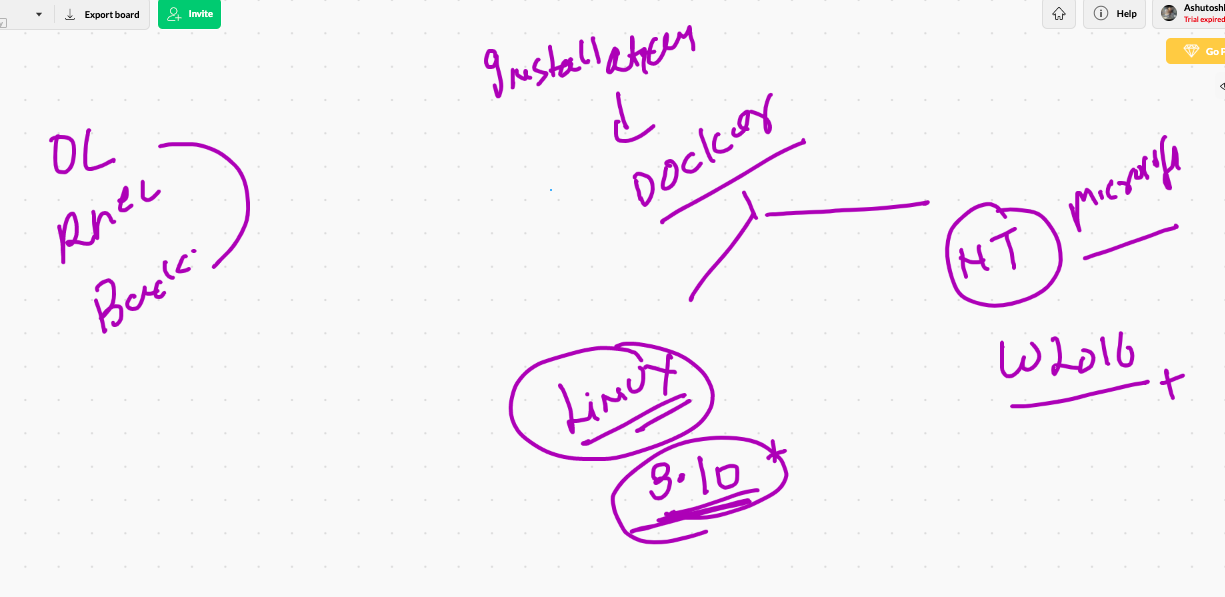 Export board
Invite
Help
Ashutosh
Trial expired
Go P
Installation
Docker
OL
RHEL
NT
Microsoft
Linux
W2016 +
3.10 +